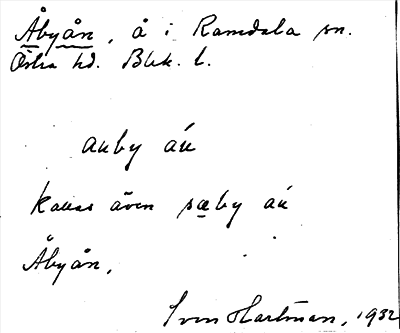 Åbyån, å i Ramdala sn.
Östra hd. Blek. l.
auby áu
kallas även sæby áu
Åbyån.
Sven Hartman, 1932